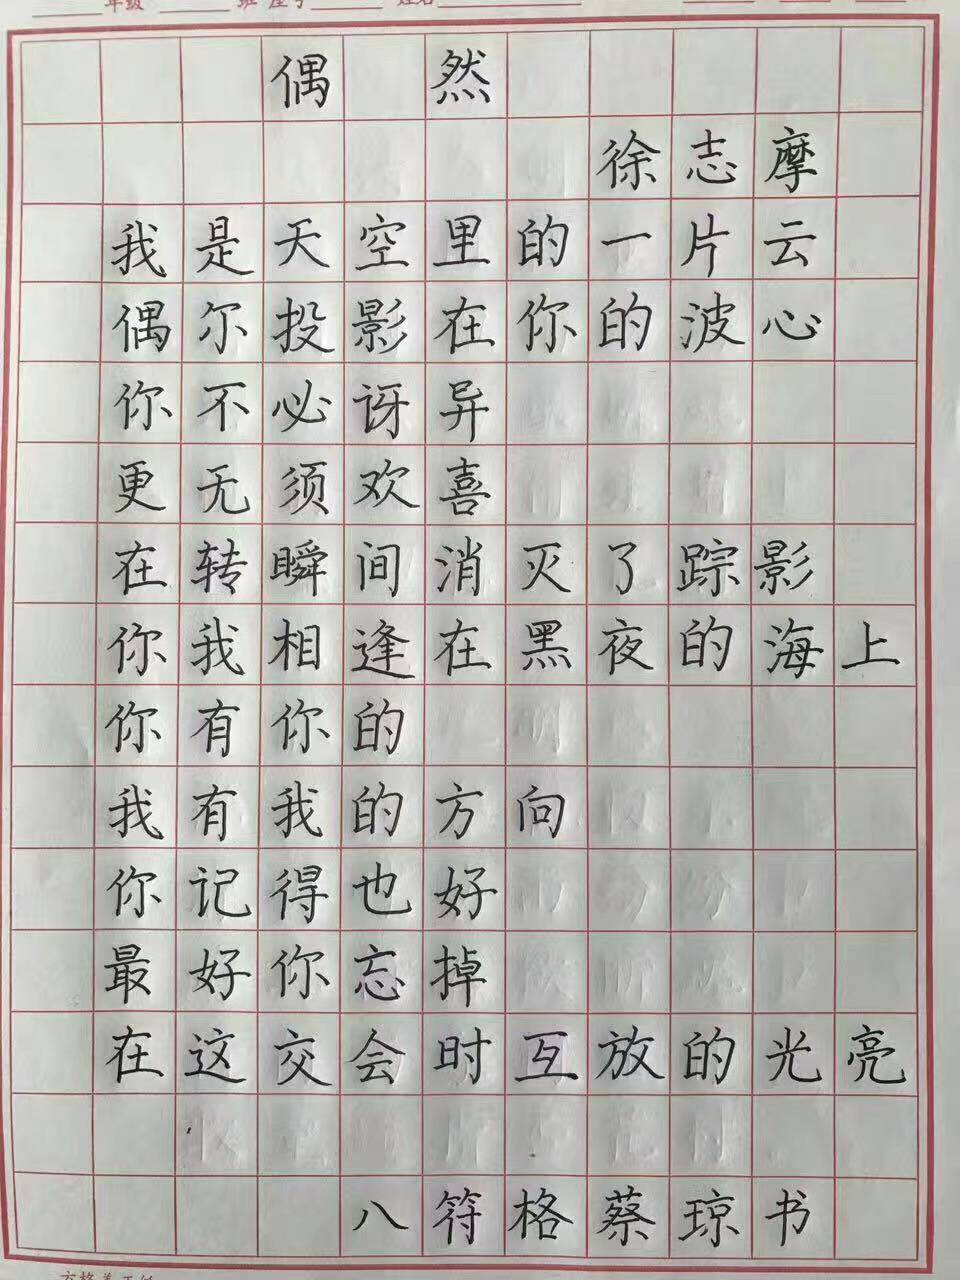 年级 班 座号 姓名
偶然
徐志摩
我是天空里的一片云
偶尔投影在你的波心
你不必讶异
更无须欢喜
在转瞬间消灭了踪影
你我相逢在黑夜的海上
你有你的
我有我的方向
你记得也好
最好你忘掉
在这交会时互放的光亮
八符格蔡琼书